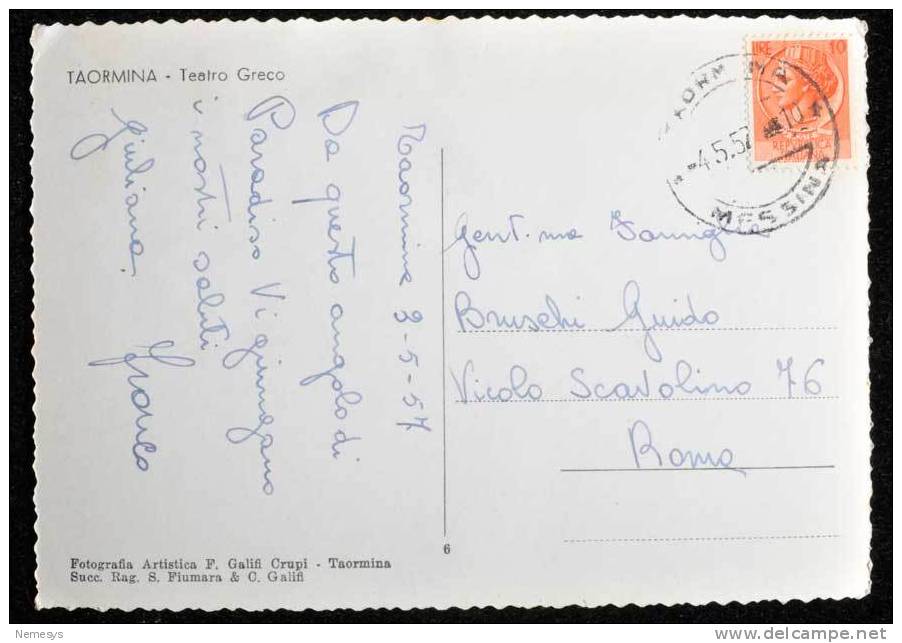 TAORMINA - Teatro Greco
Taormina 3-5-57
Da questo angolo di
Paradiso Vi giungano
i nostri saluti
Giuliana. Franco
LIRE 10
REPVBBLICA
ITALIANA
TAORMINA
-4.5.57 10
MESSINA
Gent.ma Famiglia
Bruschi Guido
Vicolo Scavolino 76
Roma
6
Fotografia Artistica F. Galifi Crupi - Taormina
Succ. Rag. S. Fiumara & C. Galifi
Nemesys
delcampe.net